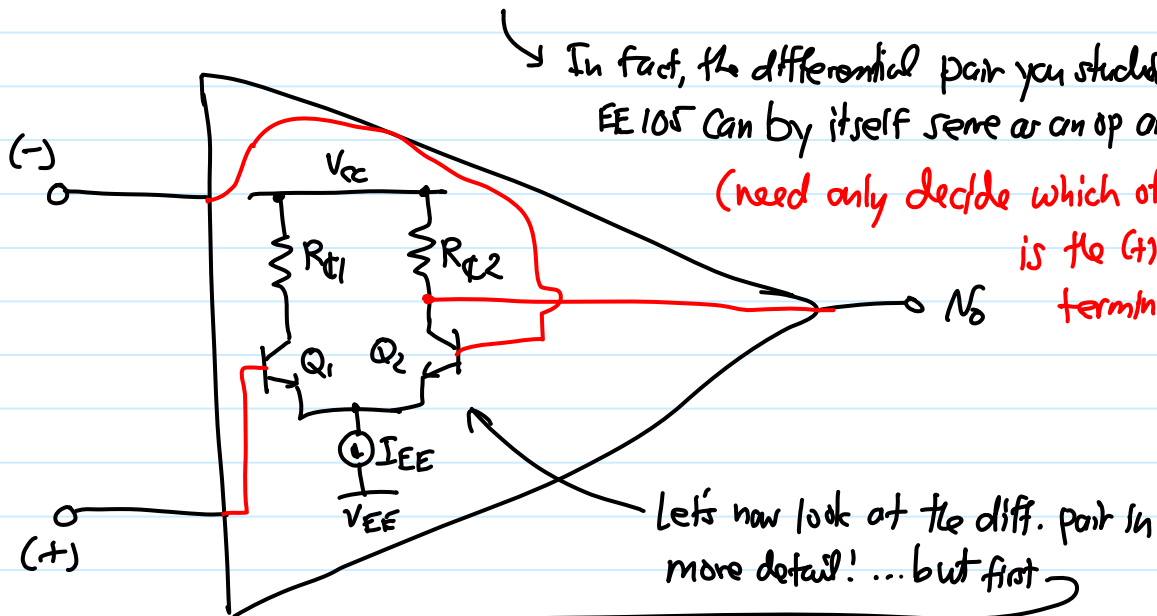 In fact, the differential pair you
EE 105 can by itself serve as an op
(need only decide which
is the (+)
(-)
VCC
RC1
RC2
No
Q1
Q2
IEE
VEE
(+)
Let's now look at the diff. pair in
more detail! ... but first